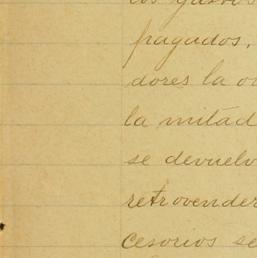 los gastos
pagados,
dores la
la mitád
se devuelv
retrovender
cesorios se